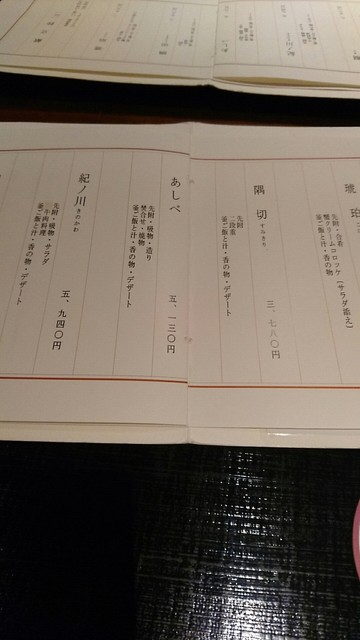 琥珀
先附・合肴
蟹クリームコロッケ（サラダ添え）
釜ご飯と汁・香の物
隅切 すみきり
先附
二段重
釜ご飯と汁・香の物・デザート
三、七八〇円
あしべ
先附・吸物・造り
焚合せ・焼物
釜ご飯と汁・香の物・デザート
五、一三〇円
紀ノ川 きのかわ
先附・吸物・サラダ
牛肉料理
釜ご飯と汁・香の物・デザート
五、九四〇円